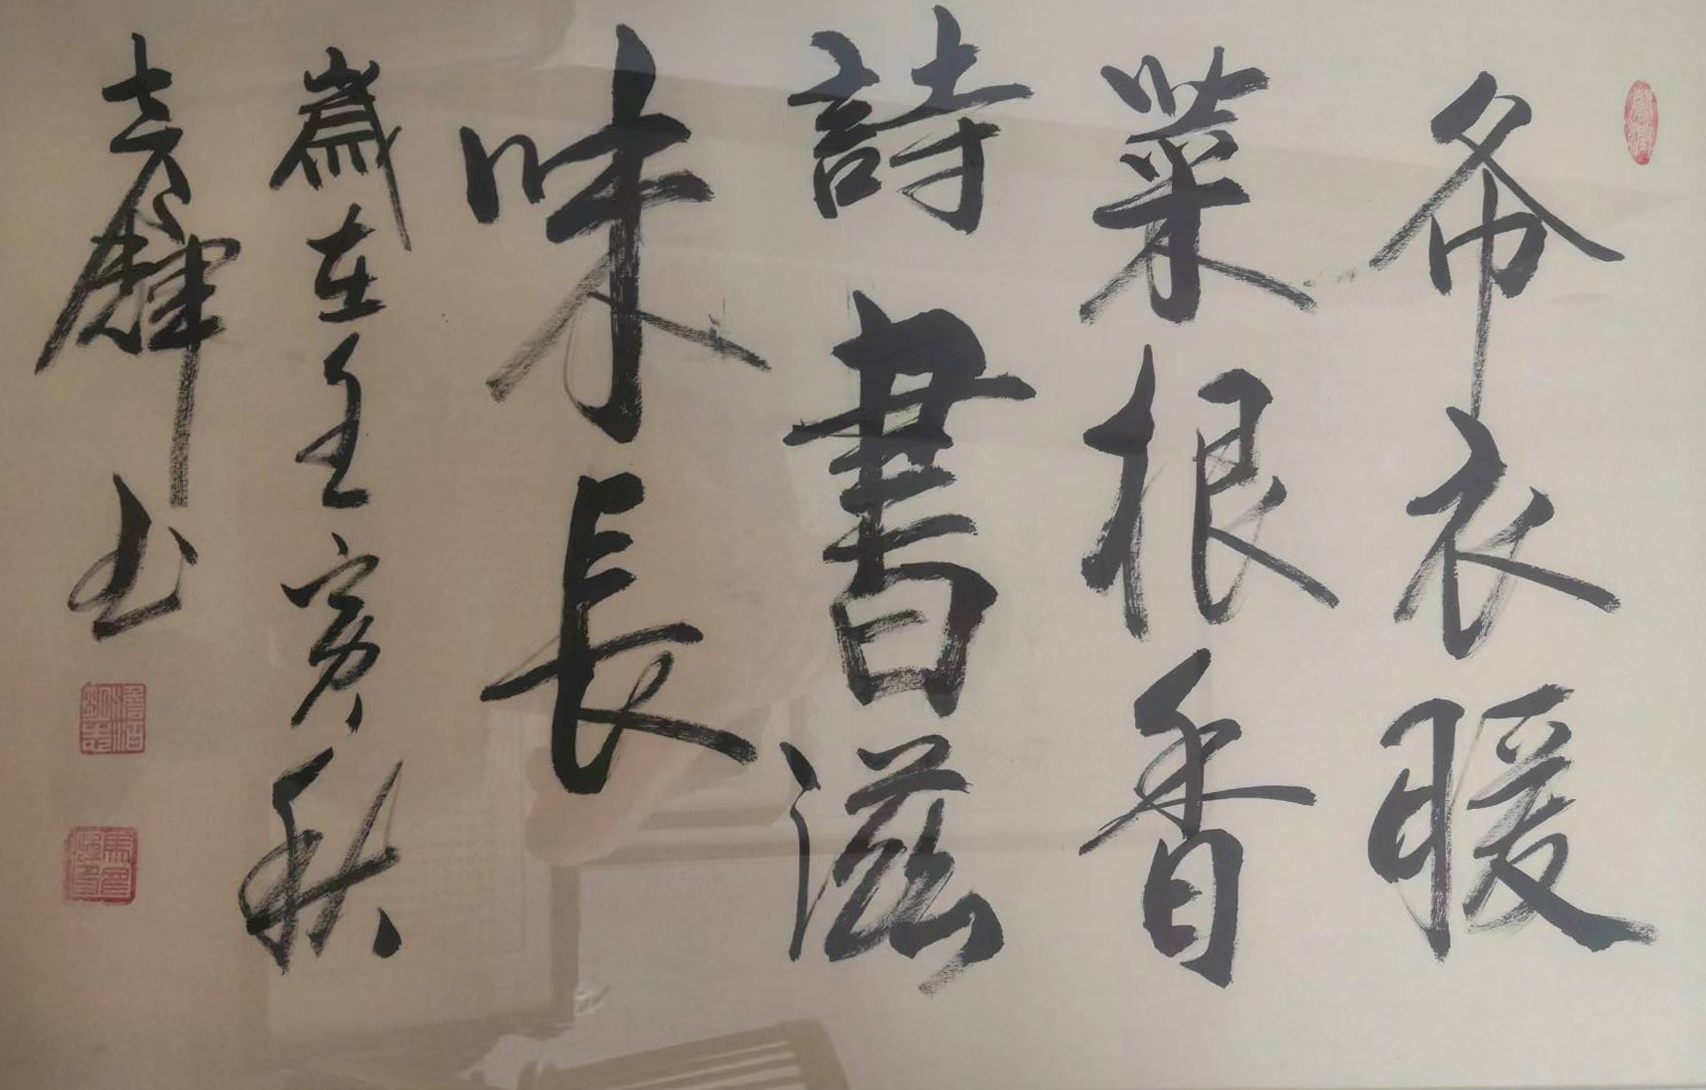 布衣暖
菜根香
詩書滋
味長
歲在壬寅秋
輝书